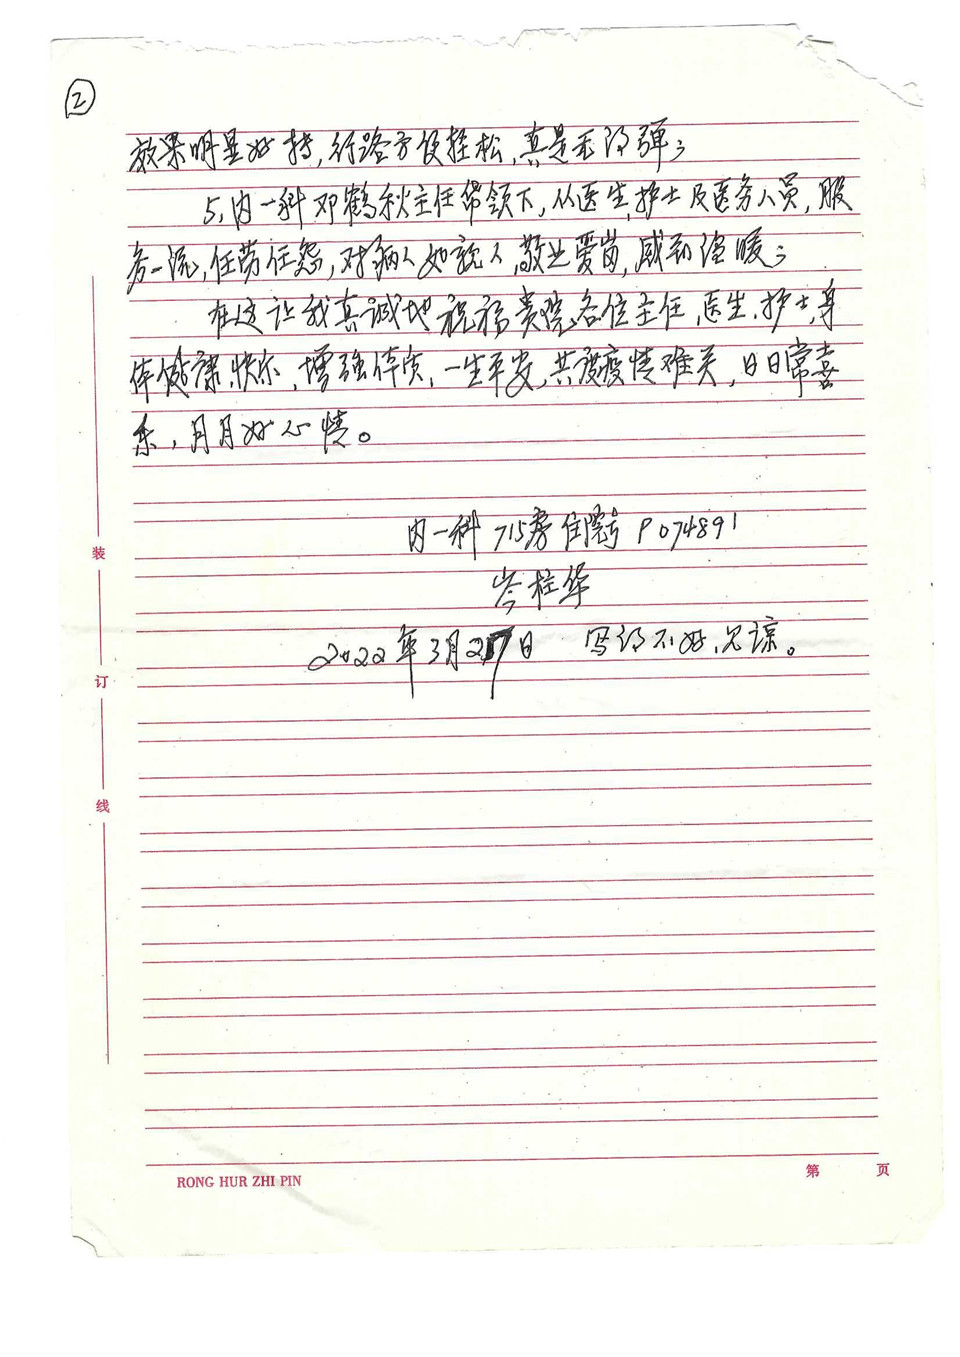 ②
效果明显好转，行路方便轻松，真是无得弹；
5，内一科邓鹤秋主任带领下，从医生，护士及医务人员，服
务一流，任劳任怨，对病人如亲人，敬业爱岗，感动温暖；
在这让我真诚地祝福贵院各位主任，医生，护士，身
体健康，快乐，增强体质，一生平安，共渡疫情难关，日日常喜
乐，月月好心情。
内一科 715房 住院号 P074891
岑柱华
2022年3月27日 写得不好，见谅。
装
订
线
RONG HUR ZHI PIN
第 页